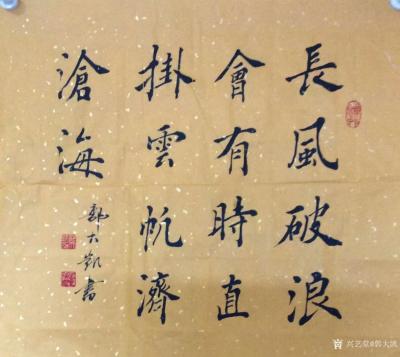 長風破浪
會有時直
掛雲帆濟
滄海
郭大凱書
兴艺堂@郭大凯